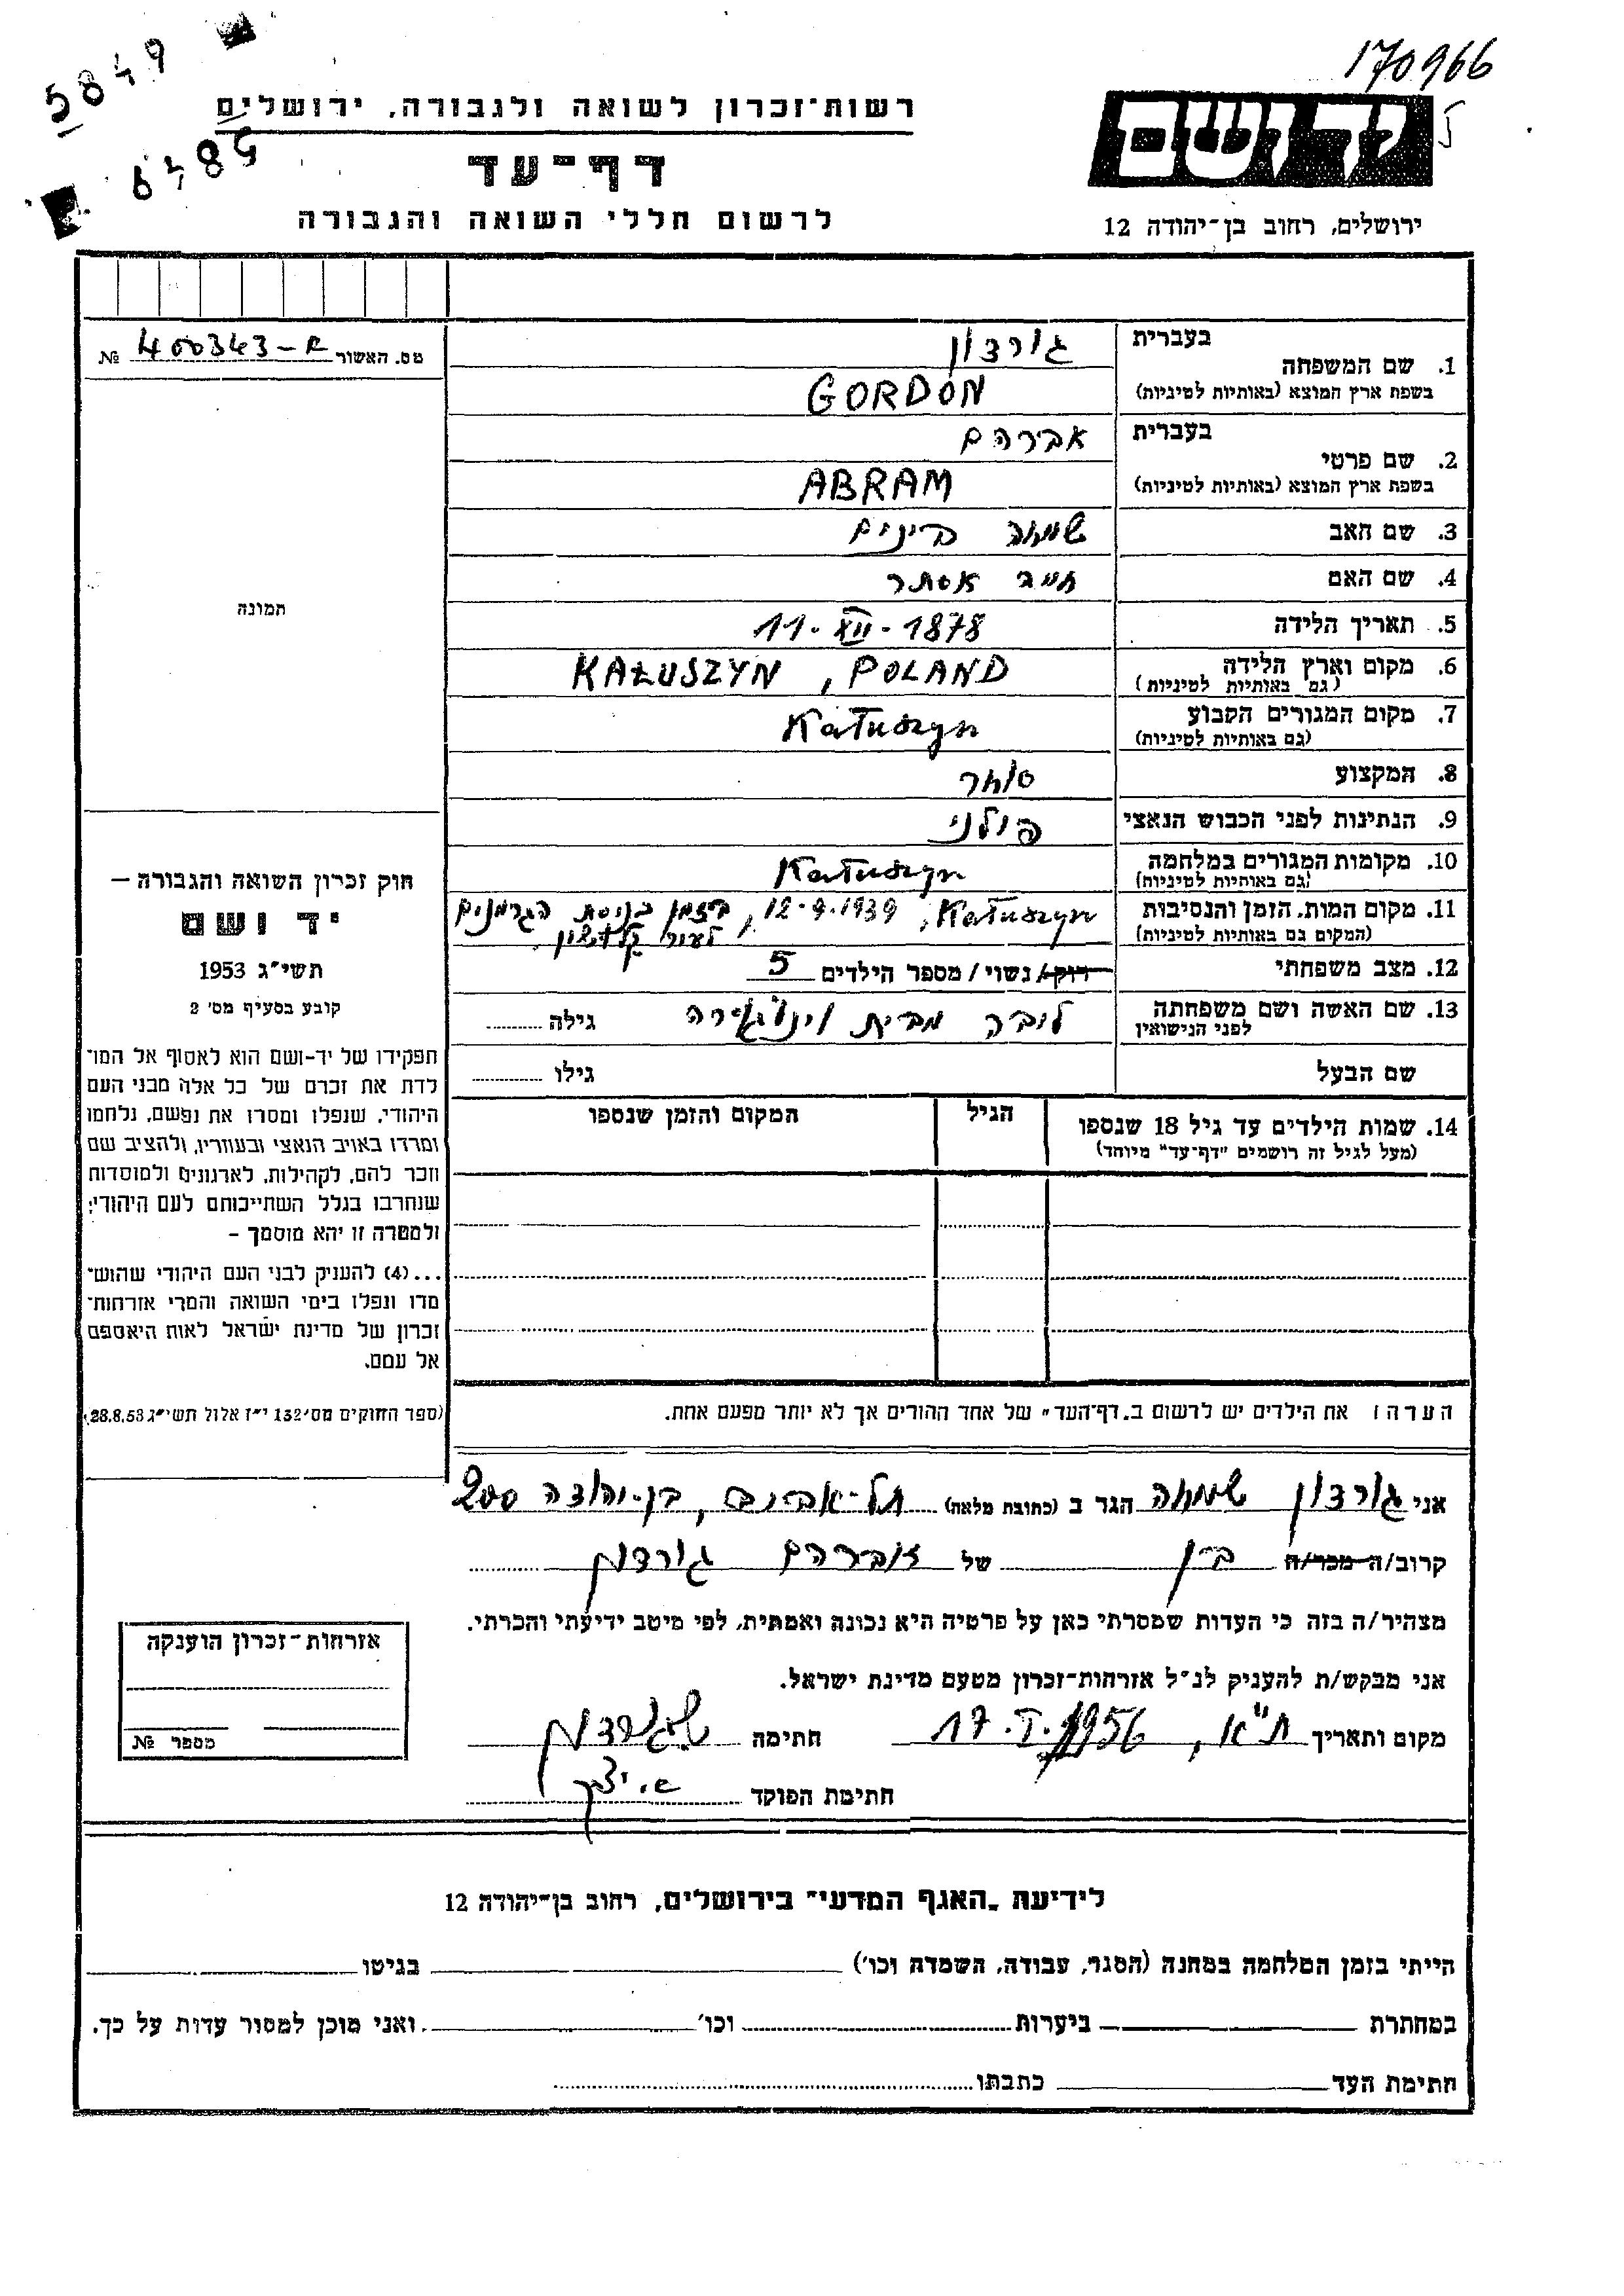 170966
5849
5849
יד ושם
רשות־זכרון לשואה ולגבורה, ירושלים
דף־עד
לרשום חללי השואה והגבורה
ירושלים, רחוב בן־יהודה 12
מס. האשור 400343-R №
1. שם המשפחה בעברית גורדון
בשפת ארץ המוצא (באותיות לטיניות) GORDON
2. שם פרטי בעברית אברהם
בשפת ארץ המוצא (באותיות לטיניות) ABRAM
3. שם האב שמחה בינים
4. שם האם חיה אסתר
5. תאריך הלידה 11-XII-1878
6. מקום וארץ הלידה (גם באותיות לטיניות) KAŁUSZYN, POLAND
7. מקום המגורים הקבוע (גם באותיות לטיניות) Kałuszyn
8. המקצוע סוחר
9. הנתינות לפני הכבוש הנאצי פולני
10. מקומות המגורים במלחמה (גם באותיות לטיניות) Kałuszyn
11. מקום המות, הזמן והנסיבות (המקום גם באותיות לטיניות) Kałuszyn, 12-9-1939, בזמן כניסת הגרמנים
לעיר קלושין.
12. מצב משפחתי רוק/ נשוי / מספר הילדים 5
13. שם האשה ושם משפחתה לפני הנישואין ליבה מבית גילה
שם הבעל גילו
14. שמות הילדים עד גיל 18 שנספו הגיל המקום והזמן שנספו
(מעל לגיל זה רושמים "דף־עד" מיוחד)
תמונה
חוק זכרון השואה והגבורה —
יד ושם
תשי"ג 1953
קובע בסעיף מס' 2
תפקידו של יד-ושם הוא לאסוף אל המו־
לדת את זכרם של כל אלה מבני העם
היהודי, שנפלו ומסרו את נפשם, נלחמו
ומרדו באויב הנאצי ובעוזריו, ולהציב שם
וזכר להם, לקהילות, לארגונים ולמוסדות
שנחרבו בגלל השתייכותם לעם היהודי;
ולמטרה זו יהא מוסמך –
...(4) להעניק לבני העם היהודי שהוש־
מדו ונפלו בימי השואה והמרי אזרחות־
זכרון של מדינת ישראל לאות היאספם
אל עמם.
(ספר החוקים מס' 132 י"ז אלול תשי"ג 28.8.53)
הערה: את הילדים יש לרשום ב„דף־העד" של אחד ההורים אך לא יותר מפעם אחת.
אני גורדון שמחה הגר ב (כתובת מלאה) תל-אביב, בן-יהודה 200
קרוב/ה מכר/ה בן של אברהם גורדון
מצהיר/ה בזה כי העדות שמסרתי כאן על פרטיה היא נכונה ואמתית, לפי מיטב ידיעתי והכרתי.
אני מבקש/ת להעניק לנ"ל אזרחות־זכרון מטעם מדינת ישראל.
מקום ותאריך ת"א, 17-I-1956 חתימה ש. גורדון
חתימת הפוקד
אזרחות־זכרון הוענקה
מספר №
לידיעת „האגף המדעי" בירושלים, רחוב בן־יהודה 12
הייתי בזמן המלחמה במחנה (הסגר, עבודה, השמדה וכו') בגיטו
במחתרת ביערות וכו' ואני מוכן למסור עדות על כך.
חתימת העד כתבתו